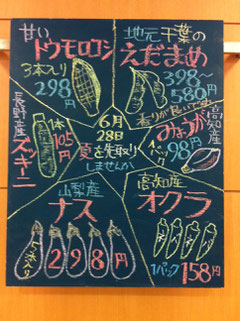 甘い
トウモロコシ
3本入り
298円
地元 千葉の
えだまめ
398円
580円
香りが良いです
みょうが
高知産
1パック
98円
長野産
ズッキーニ
1本
105円
6月
28日
夏を先取り
しませんか
山梨産
ナス
5本入り
298円
高知産
オクラ
1パック158円